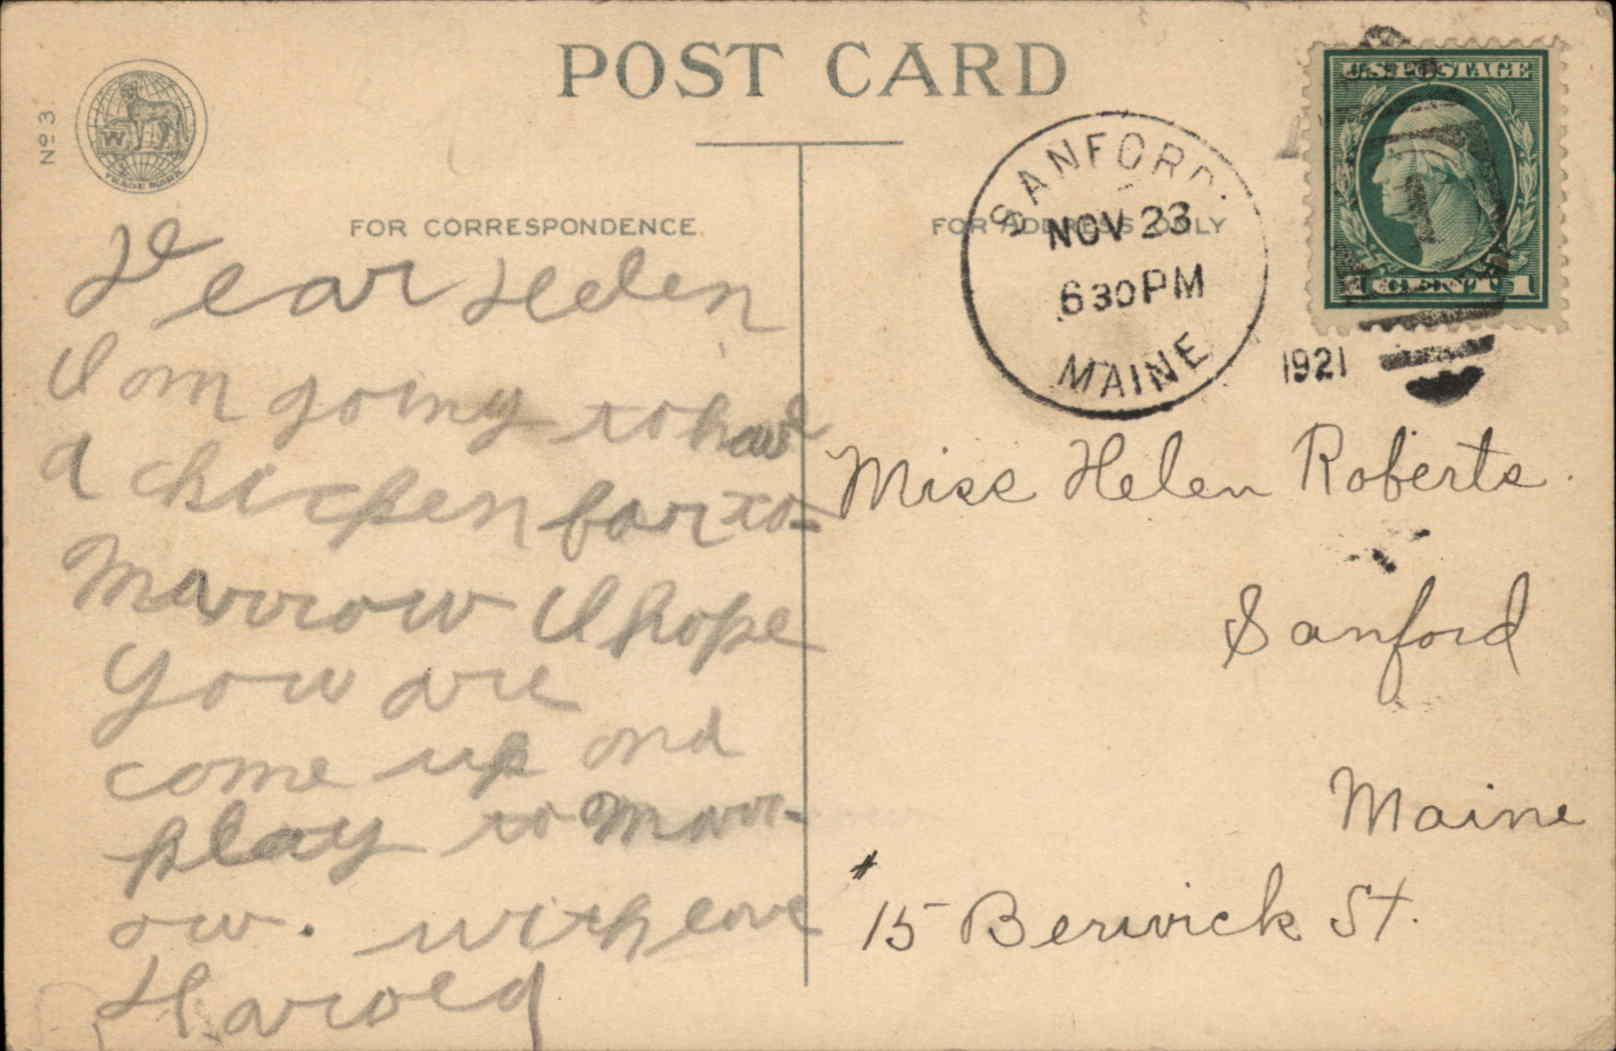 POST CARD
No 3
W
TRADE MARK
FOR CORRESPONDENCE
FOR ADDRESS ONLY
SANFORD.
NOV 23
6 30 PM
MAINE
1921
U.S. POSTAGE
1 CENT 1
Dear Helen
I am going to have
a chicken for to-
Marrow I hope
you are
come up and
play to Marr-
ow. with love
Harold
Miss Helen Roberts.
Sanford
Maine
#15 Berwick St.